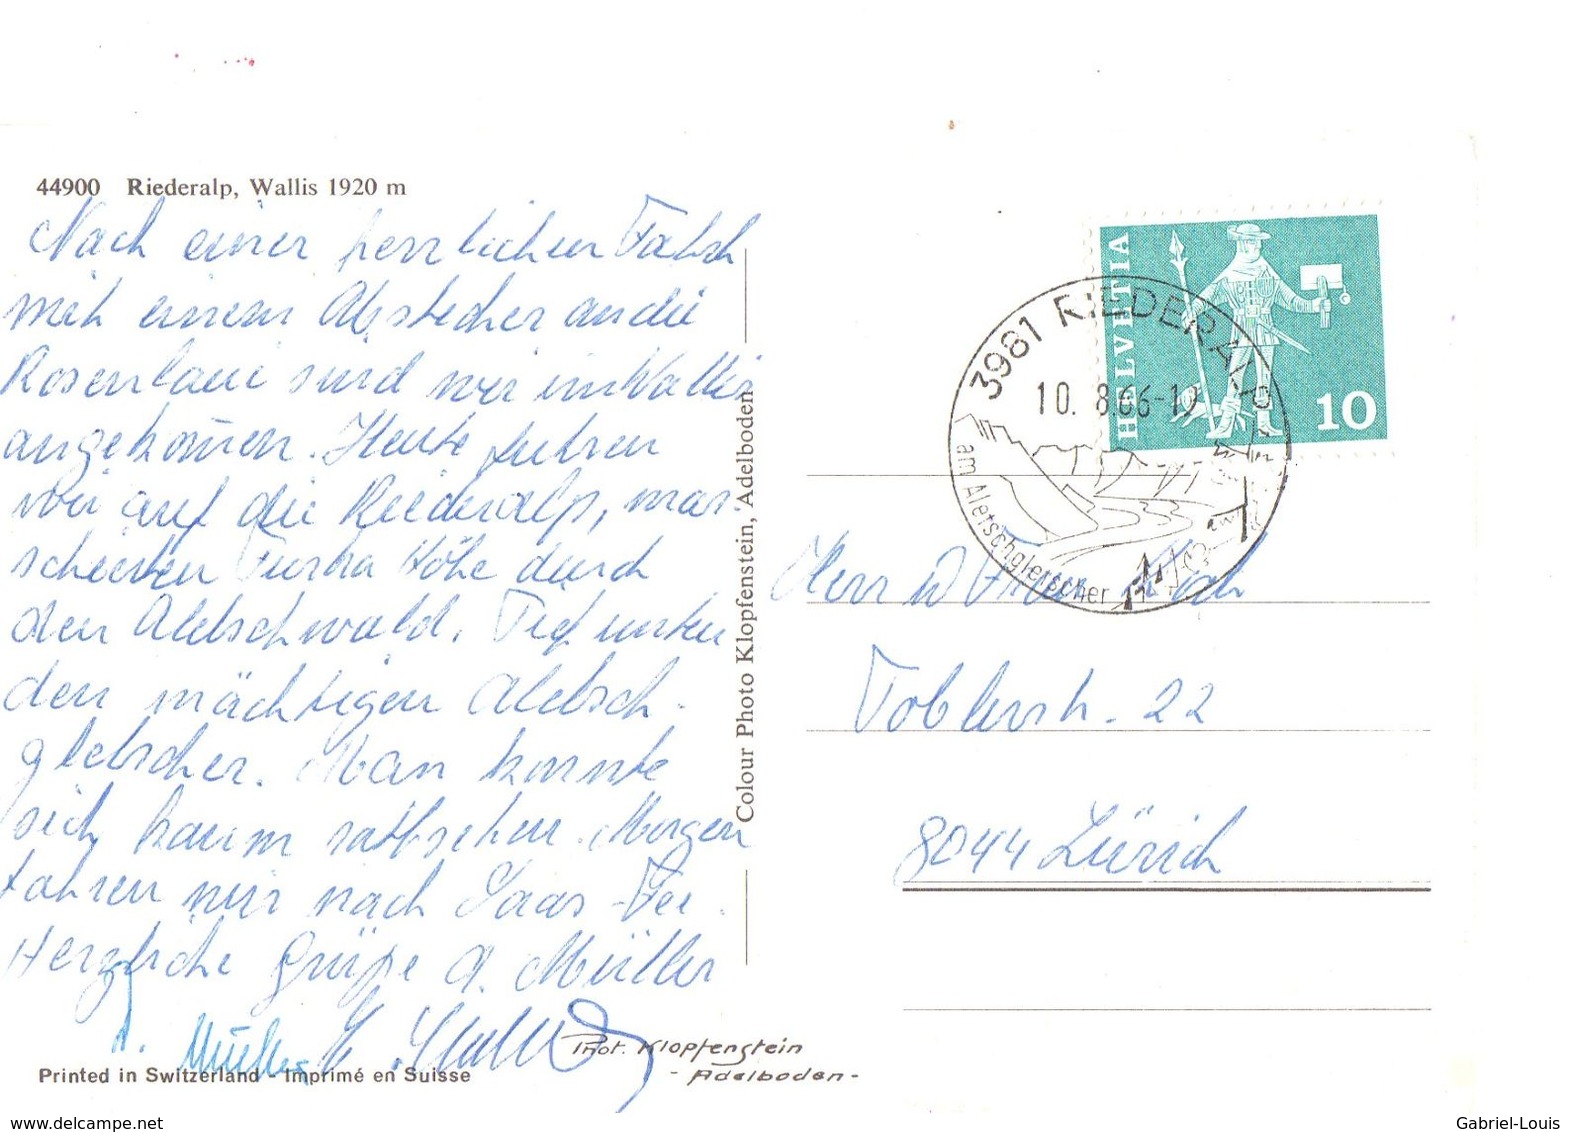 44900 Riederalp, Wallis 1920 m
Nach einer herrlichen Fahrt
mit einem Abstecher an die
Rosenlaui sind wir im Wallis
angekom̄en. Heute fuhren
wir auf die Riederalp, mar-
schierten Furka Höhe durch
den Aletschwald. Tief unten
den mächtigen Aletsch-
gletscher. Man konnte
sich kaum sattsehen. Morgen
fahren wir nach Saas-Fee.
Herzliche Grüße A. Müller
A. Müller
Printed in Switzerland - Imprimé en Suisse
Phot. Klopfenstein
- Adelboden -
Colour Photo Klopfenstein, Adelboden
HELVETIA
10
3981 RIEDERALP
10. 8.66-19
am Aletschgletscher
Herr u Frau
Toblerstr. 22
8044 Zürich
www.delcampe.net
Gabriel-Louis